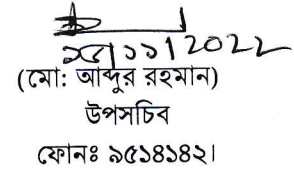 ১৫/১১/2022
(মো: আব্দুর রহমান)
উপসচিব
ফোনঃ ৯৫১৪১৪২।